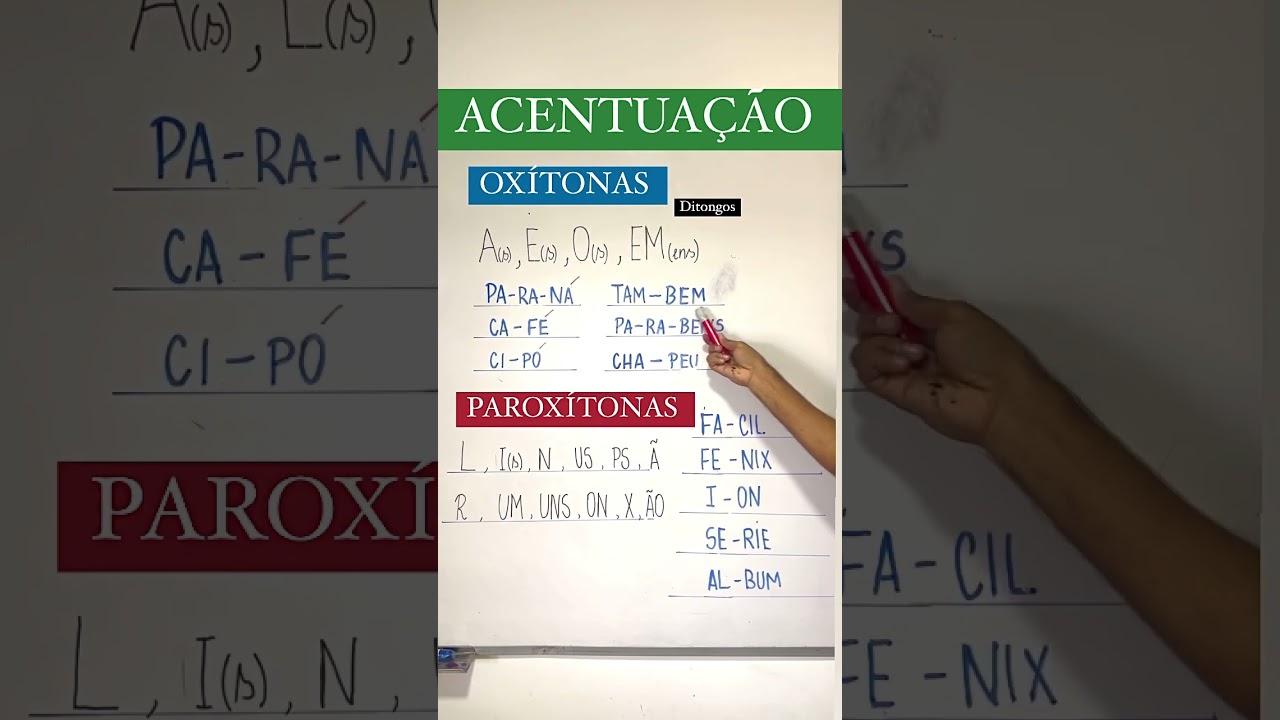 ACENTUAÇÃO
OXÍTONAS
Ditongos
A(s), E(s), O(s), EM(ens)
PA-RA-NÁ TAM-BEM
CA-FÉ PA-RA-BENS
CI-PÓ CHA-PEU
PAROXÍTONAS
L, I(s), N, US, PS, Ã
R, UM, UNS, ON, X, ÃO
FA-CIL
FE-NIX
I-ON
SE-RIE
AL-BUM